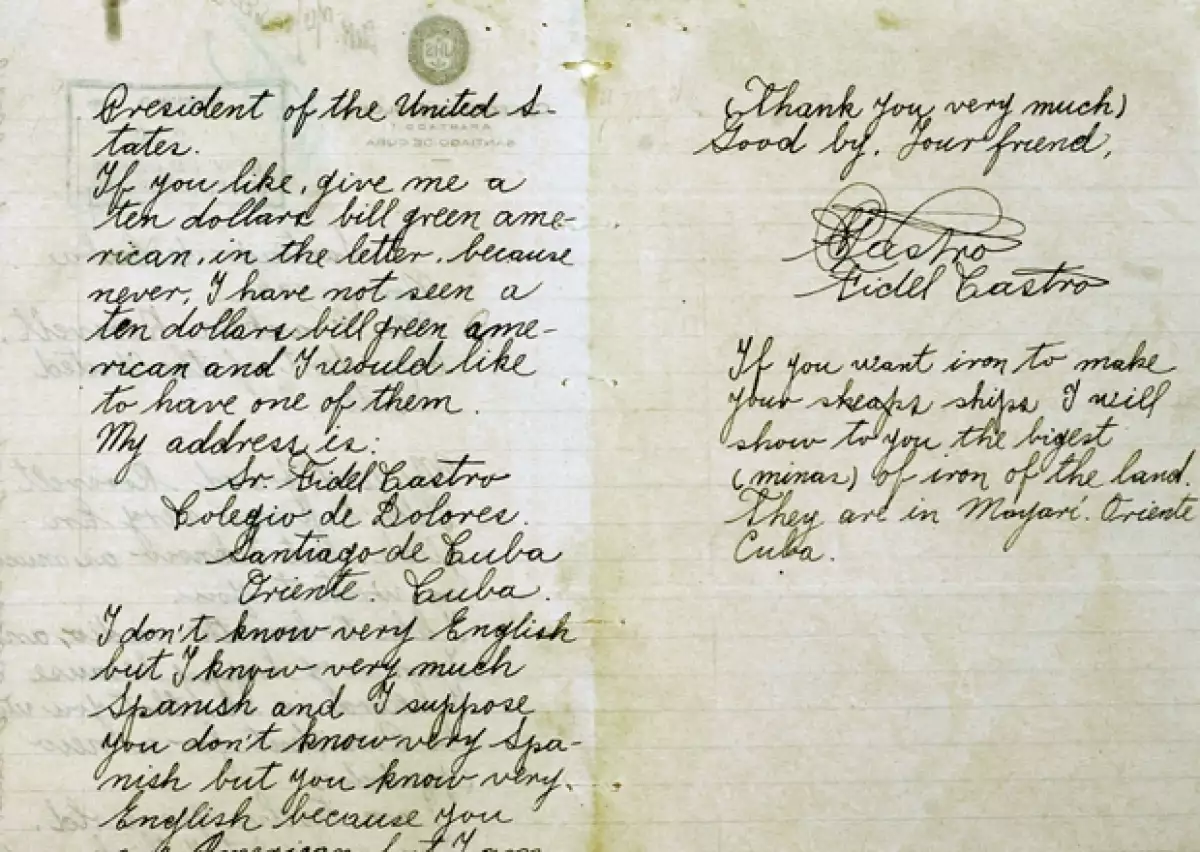 President of the United S-
tates.
If you like, give me a
ten dollars bill green ame-
rican, in the letter, because
never, I have not seen a
ten dollars bill green ame-
rican and I would like
to have one of them.
My address is:
Sr. Fidel Castro
Colegio de Dolores.
Santiago de Cuba
Oriente. Cuba.
I don't know very English
but I know very much
Spanish and I suppose
you don't know very Spa-
nish but you know very
English because you
American but I am
(Thank you very much)
Good by. Your friend,
Castro
Fidel Castro
If you want iron to make
your ships I will
show to you the bigest
(minas) of iron of the land.
They are in Mayarí. Oriente
Cuba.
APARTADO 1
SANTIAGO DE CUBA